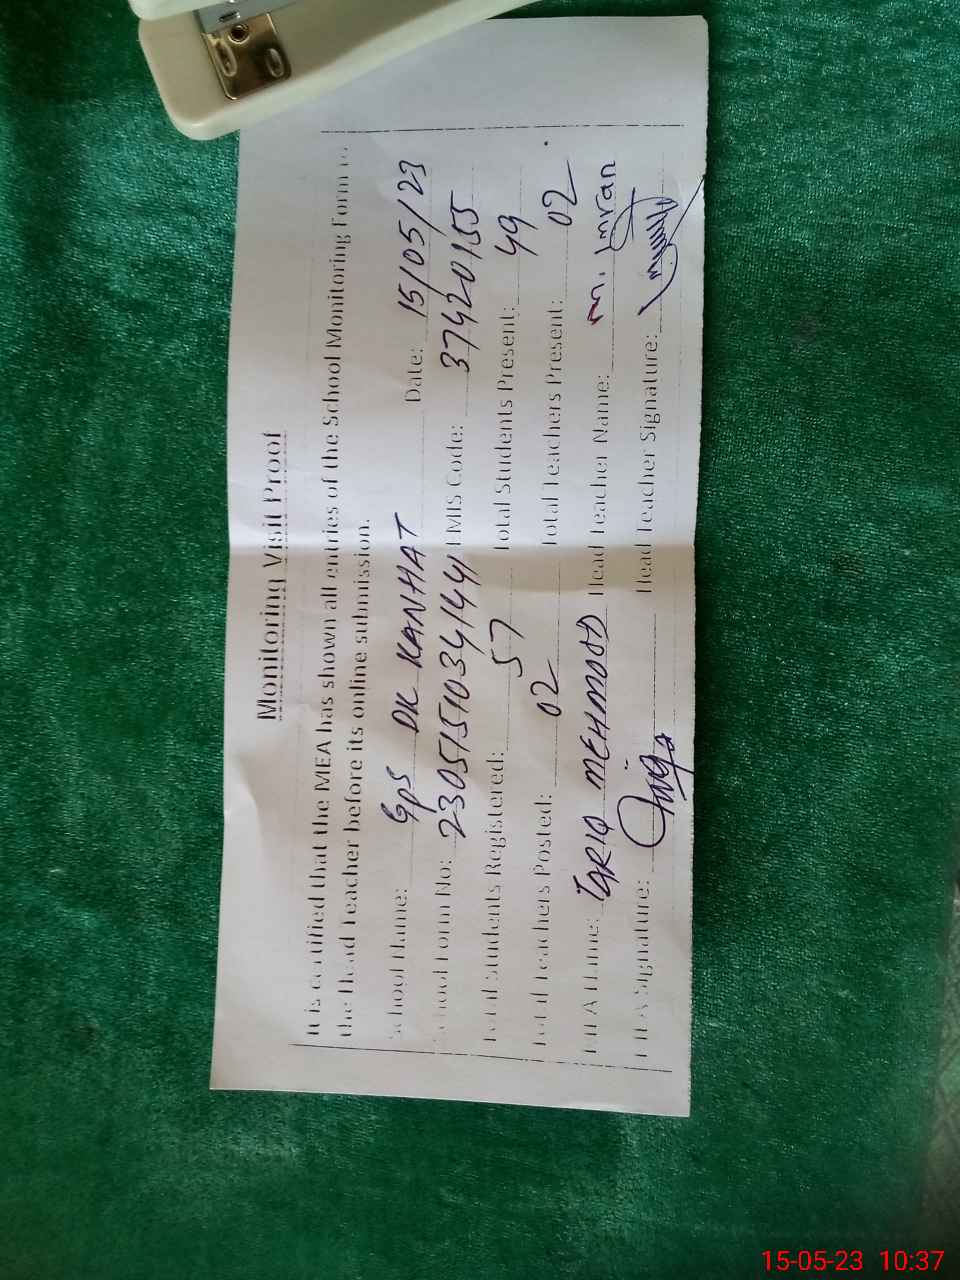 Monitoring Visit Proof
It is certified that the MEA has shown all entries of the School Monitoring Form to
the Head Teacher before its online submission.
School Name: GPS DK KANHAT Date: 15/05/23
School Form No: 23051510341441 EMIS Code: 37420155
Total Students Registered: 57 Total Students Present: 49
Total Teachers Posted: 02 Total Teachers Present: 02
MEA Name: TARIQ MEHMOOD Head Teacher Name: M. Imran
MEA Signature: Head Teacher Signature:
15-05-23 10:37